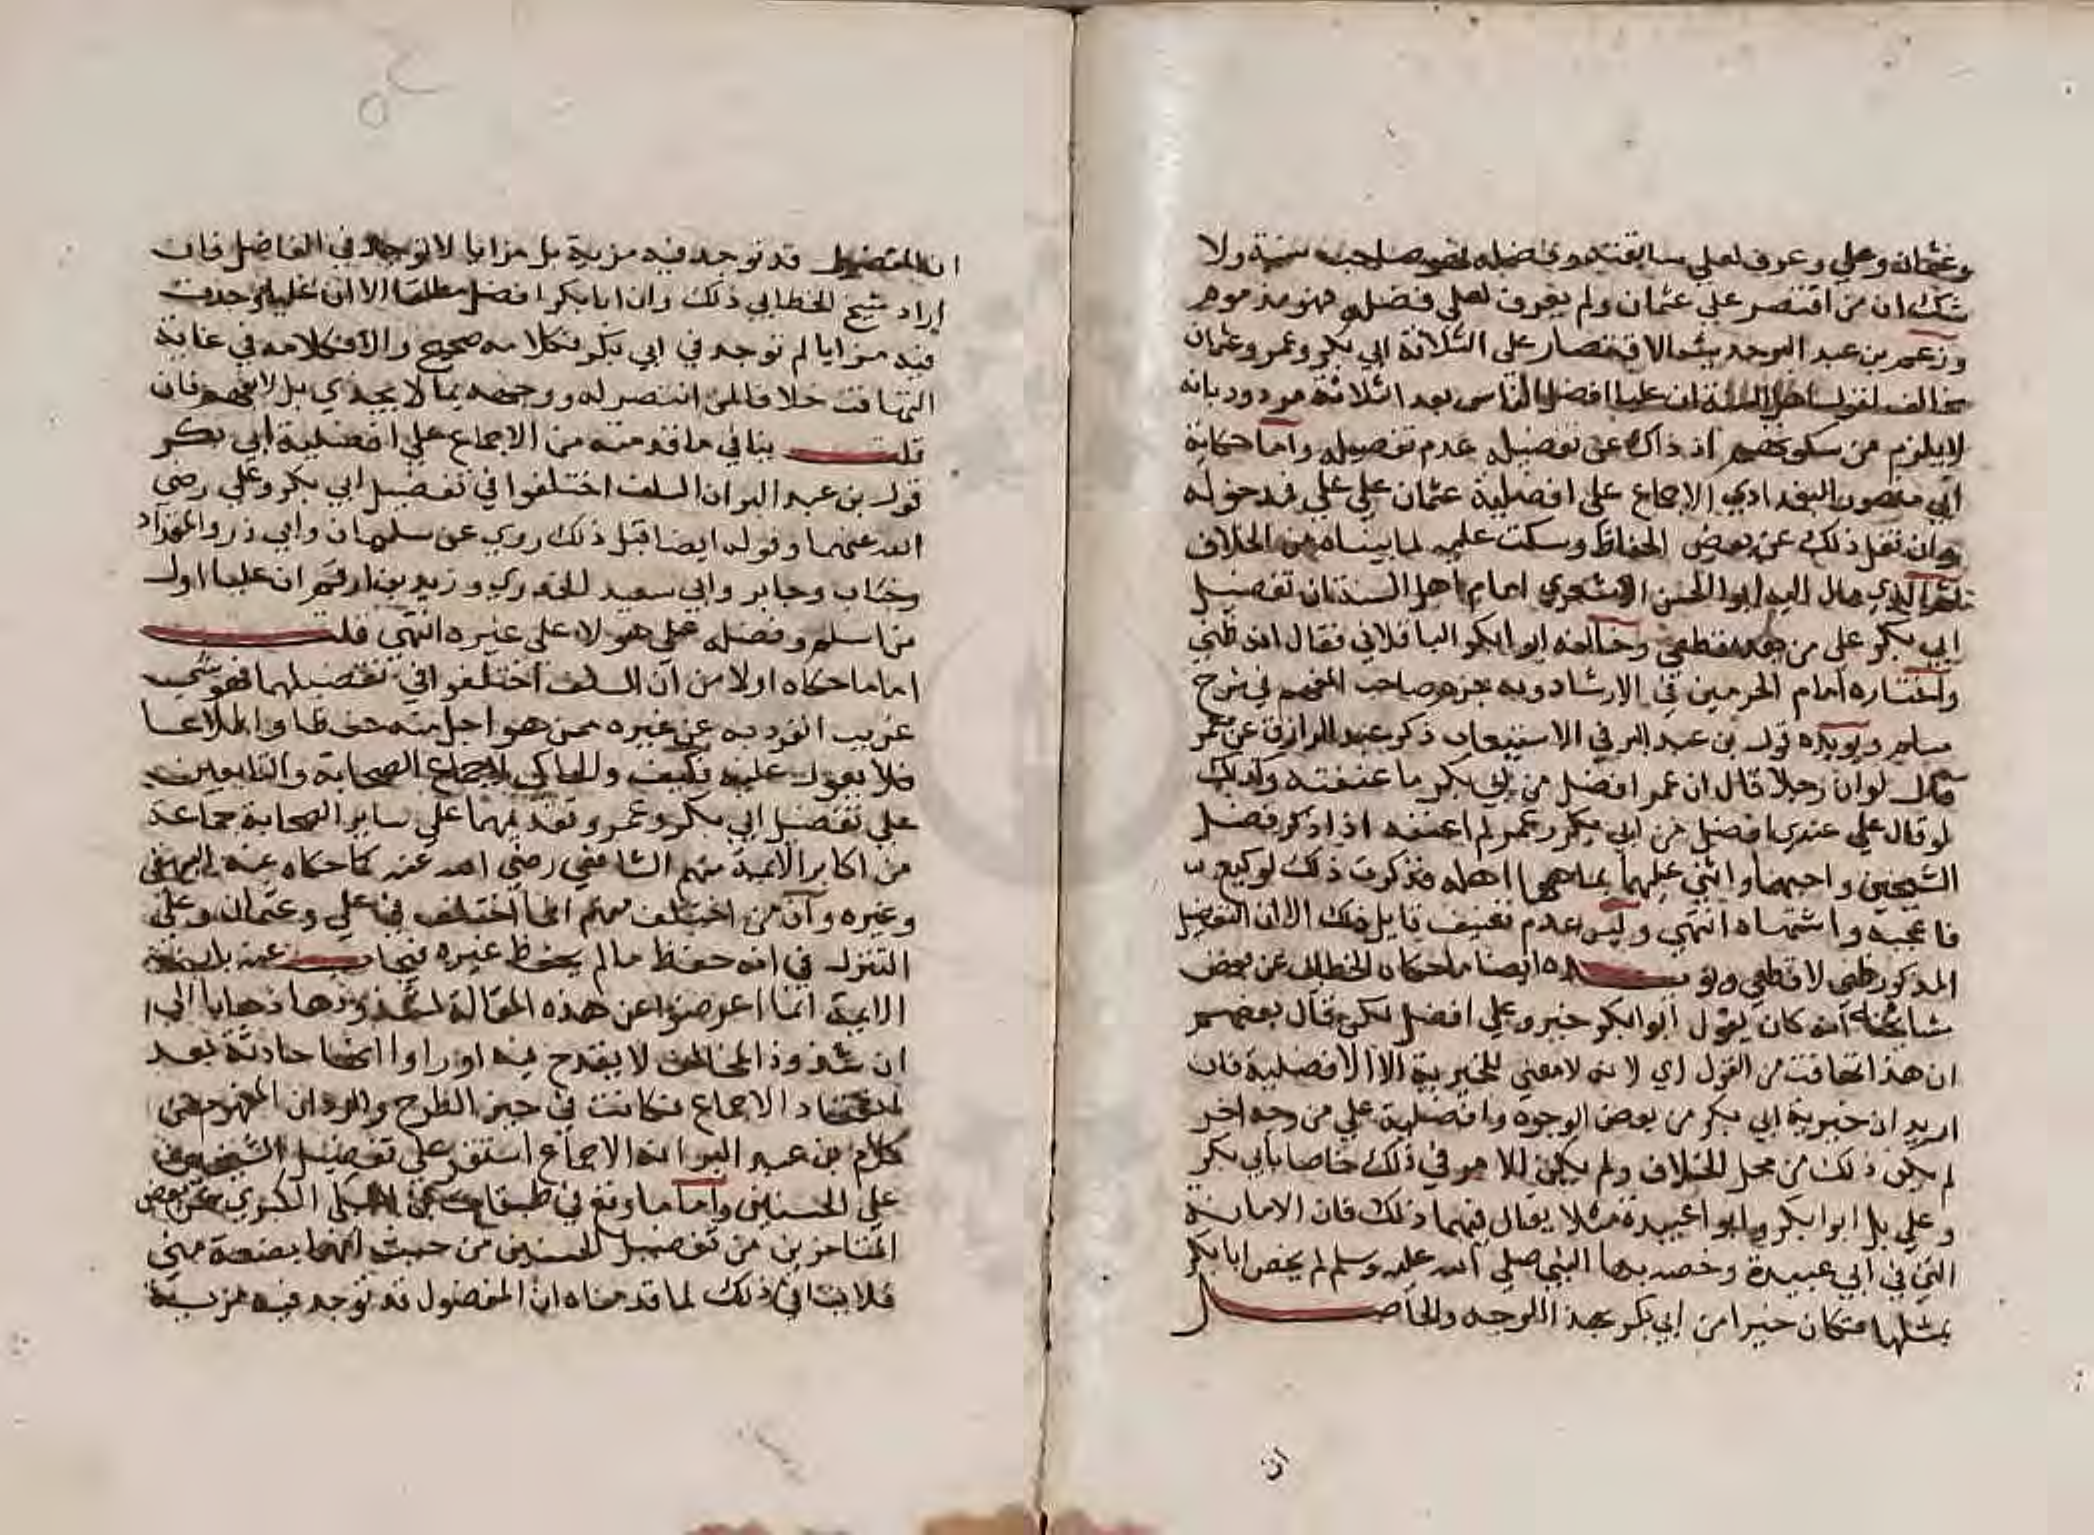 وعثمان وعلي وعرف لعلي سابقته وفضله فهو صاحب سنة ولا
شك ان من اقتصر على عثمان ولم يعرف لعلي فضله فهو مذموم
وزعم بن عبد البر حديث الاقتصار على الثلاثة ابي بكر وعمر وعثمان
مخالف لقول اهل السنة ان عليا افضل الناس بعد الثلاثة مردود بانه
لا يلزم من سكوتهم اذ ذاك عن تفضيله عدم تفضيله واما حكاية
ابي منصور البغدادي الاجماع على افضلية عثمان على علي فمدخولة
وان نقل ذلك عن بعض الحفاظ وسكت عليه لما بيناه من الخلاف
ثم الذي مال اليه ابوا الحسن الاشعري امام اهل السنة ان تفضيل
ابي بكر على من بعده قطعي وخالفه ابوا بكر الباقلاني فقال انه ظني
واختاره امام الحرمين في الارشاد وبه جزم صاحب المفهم في شرح
مسلم ويويده قول بن عبد البر في الاستيعاب ذكر عبد الرازق عن معمر
قال لو ان رجلا قال ان عمر افضل من ابي بكر ما عنفته وكذلك
لو قال علي عندي افضل من ابي بكر وعمر لم اعنفه اذا ذكر فضل
الشيخين واحبهما واثنى عليهما بما هما اهله فذكرت ذلك لوكيع
فاعجبه واشتهاه انتهى وليس عدم تعنيف قايل ذلك الا ان التفضيل
المذكور ظني لا قطعي ويويده ايضا ما حكاه الخطابي عن بعض
مشايخه انه كان يقول ابوا بكر خير وعلي افضل لكن قال بعضهم
ان هذا تهافت من القول اي لانه لا معنى للخيرية الا الافضلية فان
اريد ان خيرية ابي بكر من بعض الوجوه وافضلية علي من وجه اخر
لم يكن ذلك من محل الخلاف ولم يكن الامر في ذلك خاصا بابي بكر
وعلي بل ابوا بكر وابوا عبيدة مثلا يقال فيهما ذلك فان الامانة
التي في ابي عبيدة وخصه بها النبي صلى الله عليه وسلم لم يخص ابا بكر
بمثلها فكان خيرا من ابي بكر بهذا الوجه والحاصل
ان
ان المفضول قد توجد فيه مزية بل مزايا لا توجد في الفاضل فان
اراد شيخ الخطابي ذلك وان ابا بكر افضل مطلقا الا ان عليا وجدت
فيه مزايا لم توجد في ابي بكر فكلامه صحيح والا فكلامه في غاية
التهافت خلافا لمن انتصر له ووجهه بما لا يجدي بل لا يفهم فان
قلت ينافي ما قدمته من الاجماع على افضلية ابي بكر
قول بن عبد البر ان السلف اختلفوا في تفضيل ابي بكر وعلي رضي
الله عنهما وقوله ايضا قبل ذلك روي عن سلمان وابي ذر والمقداد
وخباب وجابر وابي سعيد الخدري وزيد بن ارقم ان عليا اول
من اسلم وفضله على هولاء على غيره انتهى قلت
اما ما حكاه اولا من ان السلف اختلفوا في تفضيلهما فهو شي
غريب انفرد به عن غيره ممن هو اجل منه حفظا واطلاعا
فلا يعول عليه فكيف والحاكي لاجماع الصحابة والتابعين
على تفضيل ابي بكر وعمر وتقديمهما على ساير الصحابة جماعة
من اكابر الايمة منهم الشافعي رضي الله عنه كما حكاه عنه البيهقي
وغيره وان من اختلف منهم انما اختلف في علي وعثمان وعلى
التنزل في انه حفظ ما لم يحفظ غيره فيجاب عنه بان
الايمة انما اعرضوا عن هذه المقالة لشذوذها ذهابا الى
ان شذوذ المخالف لا يقدح فيه او راوا انها حادثة بعد
انعقاد الاجماع فكانت في حيز الطرح والرد ان المفهوم من
كلام بن عبد البر ان الاجماع استقر على تفضيل الشيخين
على الحسنين واما ما وقع في طبقات السبكي الكبرى عن بعض
المتاخرين من تفضيل الحسنين من حيث انهما بضعة مني
فلا ينافي ذلك لما قدمناه ان المفضول قد توجد فيه مزية